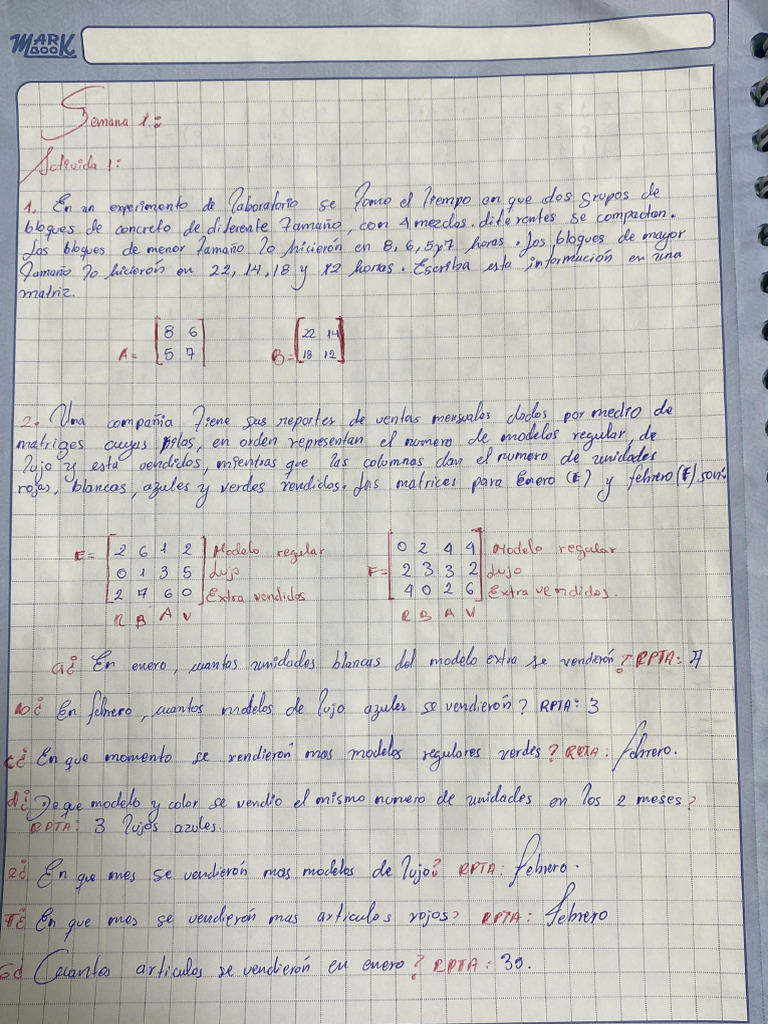 MARK BOOK
Semana 1:
Activida 1:
1. En un experimento de laboratorio se Tomo el Tiempo en que dos grupos de
bloques de concreto de diferente Tamaño, con 4 mezclas diferentes se compactan.
Los bloques de menor Tamaño lo hicierón en 8, 6, 5 y 7 horas. Los bloques de mayor
Tamaño lo hicierón en 22, 14, 18 y 12 horas. Escriba esta información en una
matriz.
A= [8 6] B= [22 14]
[5 7] [18 12]
2. Una compañia Tiene sus reportes de ventas mensuales dados por medio de
matrizes cuyas pilas, en orden representan el numero de modelos regular, de
lujo y esta vendidos, mientras que las columnas dan el numero de unidades
rojas, blancas, azules y verdes vendidos. Las matrices para Enero (E) y febrero (F) son:
E= [2 6 1 2] Modelo regular [0 2 4 4] Modelo regular
[0 1 3 5] Lujo F= [2 3 3 2] Lujo
[2 7 6 0] Extra vendidos [4 0 2 6] Extra vendidos.
R B A V R B A V
a¿ En enero, cuantas unidades blancas del modelo extra se venderón? RPTA: 7
b¿ En febrero, cuantos modelos de lujo azules se vendierón? RPTA: 3
c¿ En que momento se vendierón mas modelos regulares verdes? RPTA: febrero.
d¿ De que modelo y color se vendio el mismo numero de unidades en los 2 meses?
RPTA: 3 lujos azules.
e¿ En que mes se vendierón mas modelos de lujo? RPTA: febrero.
F¿ En que mes se vendierón mas articulos rojos? RPTA: febrero
G¿ Cuantos articulos se vendierón en enero? RPTA: 35.